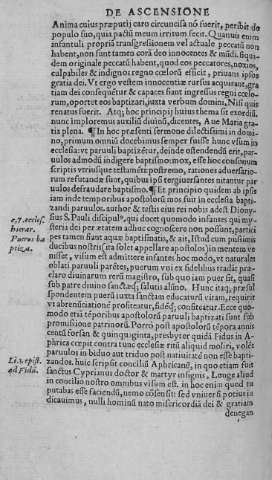 DE ASCENSIONE
Anima cuius præputij caro circuncisa nõ fuerit, peribit de
populo suo, quia pactũ meum irritum fecit. Quanuis enim
infantuli propria transgressionem vel actuale peccatũ non
habent, non sunt tamen corã deo innocentes & mũdi. siqui-
dem originale peccatũ habent, quod eos peccatores, noxios,
culpabiles & indignos regno cœlorũ efficit, priuans ipsos
gratia dei. Vt ergo vestem innocentiæ rursus acquirãt, gra-
tiam dei consequãtur & capaces sint ingressus regni cœlo-
rum, oportet eos baptizari, iuxta verbum domini, Nisi quis
renatus fuerit. Atq; hoc principij huius thema sit exordiũ.
nunc imploremus auxiliũ diuinũ, dicentes, Aue Maria gra-
tia plena. ¶ In hoc præsenti sermone dilectissimi in domi-
no, primum omniũ docebimus semper fuisse hunc vsum in
ecclesia vt paruuli baptizẽtur, deinde ostendendũ erit, par-
uulos admodũ indigere baptismo: mox, esse hoc consonum
scriptis vtriusque testamẽti: postremo, rationes aduersario-
rum refutandæ sunt, quibus ipsi tergiuersantes nituntur par
uulos defraudare baptismo. ¶ Et principio quidem ab ipso
iam inde temporibus apostolorũ mos fuit in ecclesia bapti-
zandi paruulos. author & testis eius rei nobis adest Diony-
sius S. Pauli discipulꝰ, qui docet quomodo infantes qui my-
steria dei per ætatem adhuc cognoscere non possunt, partici
pes tamen fiant aquæ baptismatis, & ait, Istud cum pussimus
ducibus nostris (ita solet appellare apostolos) in mentem ve
nisset, visum est admittere infantes hoc modo, vt naturales
oblati paruuli parẽtes, puerum voti ex fidelibus tradãt præ-
claro diuinarum rerũ magistro, sub quo iam puer sit, quasi
sub patre diuino sanctæq; salutis alũno. Hunc itaq; præsul
spondentem puerũ iuxta sanctam educaturũ vitam, requirit
vt abrenũciationes profiteatur, fidẽq; consecratæ. Ecce quo-
modo etiã tẽporibus apostolorũ paruuli baptizati sunt sub
promissione patrinorũ. Porro post apostolorũ tẽpora annis
centũ forsan & quinquaginta, presbyter quidã Fidus in A-
phrica cœpit contra tunc ecclesiæ ritũ aliquid moliri, volẽs
paruulos in biduo aut triduo post natiuitatẽ non esse bapti-
zandos. huic scripsit conciliũ Aphricanũ, in quo etiam fuit
sanctus Cyprianus doctor & martyr insignis, Longe aliud
in concilio nostro omnibus visum est. in hoc enim quod tu
putabas esse faciendũ, nemo cõsensit: sed vniuersi potius iu
dicauimus, nulli hominũ nato misericordiã dei & gratiam
denegan
c. 7. ecclesi.
hierar.
Pueros ba
ptizã.
Li. 3. epist.
ad Fidũ.